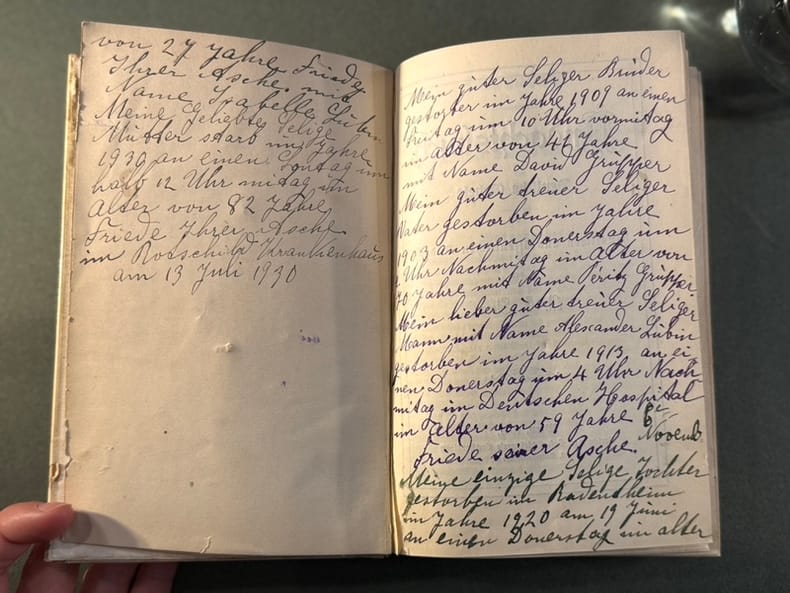 Mein guter Seliger Brüder
gestorter im Jahre 1909 an einen
Freitag um 10 Uhr vormitag
im alter von 46 Jahre
mit Name David Grüpper
Mein guter treuer Seliger
Vater gestorben im Jahre
1903 an einen Donerstag um
4 Uhr Nachmitag im Alter von
70 Jahre mit Name Peritz Grüpper
Mein lieber guter treuer Seliger
Mann mit Name Alexander Lübin
gestorben im Jahre 1913 an ei
nen Donerstag um 4 Uhr Nach
mitag im Deutschen Hospital
im Alter von 59 Jahre 6
Novemb
Friede seiner Asche.
Meine einzige Selige Tochter
gestorben im Radentheim
im Jahre 1920 am 19 Juni
an einen Donerstag im alter
von 27 Jahre Friede
Ihrer Asche mit
Name Isabella Lübin
Meine geliebte Selige
Mutter starb im Jahre
1930 an einen Sontag um
halb 12 Uhr mitag im
Alter von 82 Jahre
Friede Ihrer Asche
im Rotschild Krankenhaus
am 13 Juli 1930